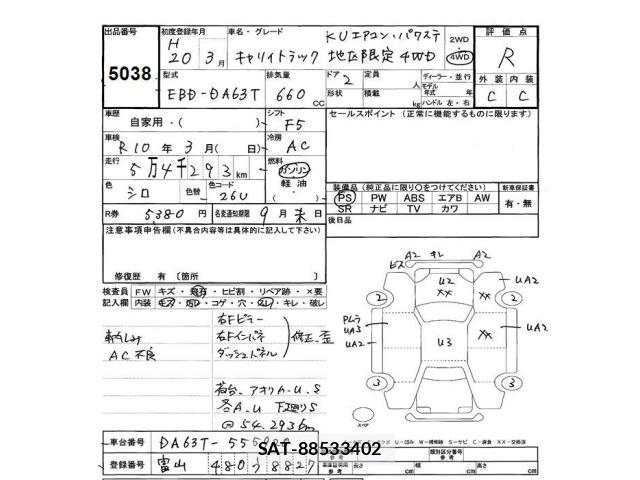 出品番号
5038
初度登録年月
H 20 3月
車名・グレード
キャリィトラック
KUエアコン・パワステ
地区限定 4WD
2WD
4WD
評価点
R
外装 内装
C C
型式
EBD-DA63T
排気量
660 cc
ドア 2
形状
定員 人
積載 kg
ディーラー・並行
モデル年式 年
ハンドル 左・右
車歴
自家用・( )
シフト
F5
車検
R10年 3月( 日)
冷房
AC
走行
5万4千293km
燃料
ガソリン
軽油
色
シロ
色替
色コード
26U
R券
5380円
名変期限 9月末日
セールスポイント (正常に機能するものに限ります)
装備品(純正品に限り○をつけてください)
新車保証書
PS PW ABS エアB AW
SR ナビ TV カワ
有・無
後日品
注意事項申告欄(不具合内容等は具体的に記入して下さい)
修復歴 有 〔箇所
検査員
記入欄
FW キズ ・ヒビ割・リペア跡・×要
内装 キズ・コゲ・穴・キレ・破レ
AC不良
右Fピラー
右Fインパネ
ダッシュパネル
修正、歪
荷台、アオリA-U、S
各A.U 下廻りS
@54.293km
A2 キレ A2
ビス
U2
XX
UA2
2 2
XX
UA3
UA2
UA2
U3
3 3
スペア
車台番号
DA63T-555
登録番号
富山 480 8827
SAT-88533402
類別区分番号
長さ cm
幅 cm
高さ cm